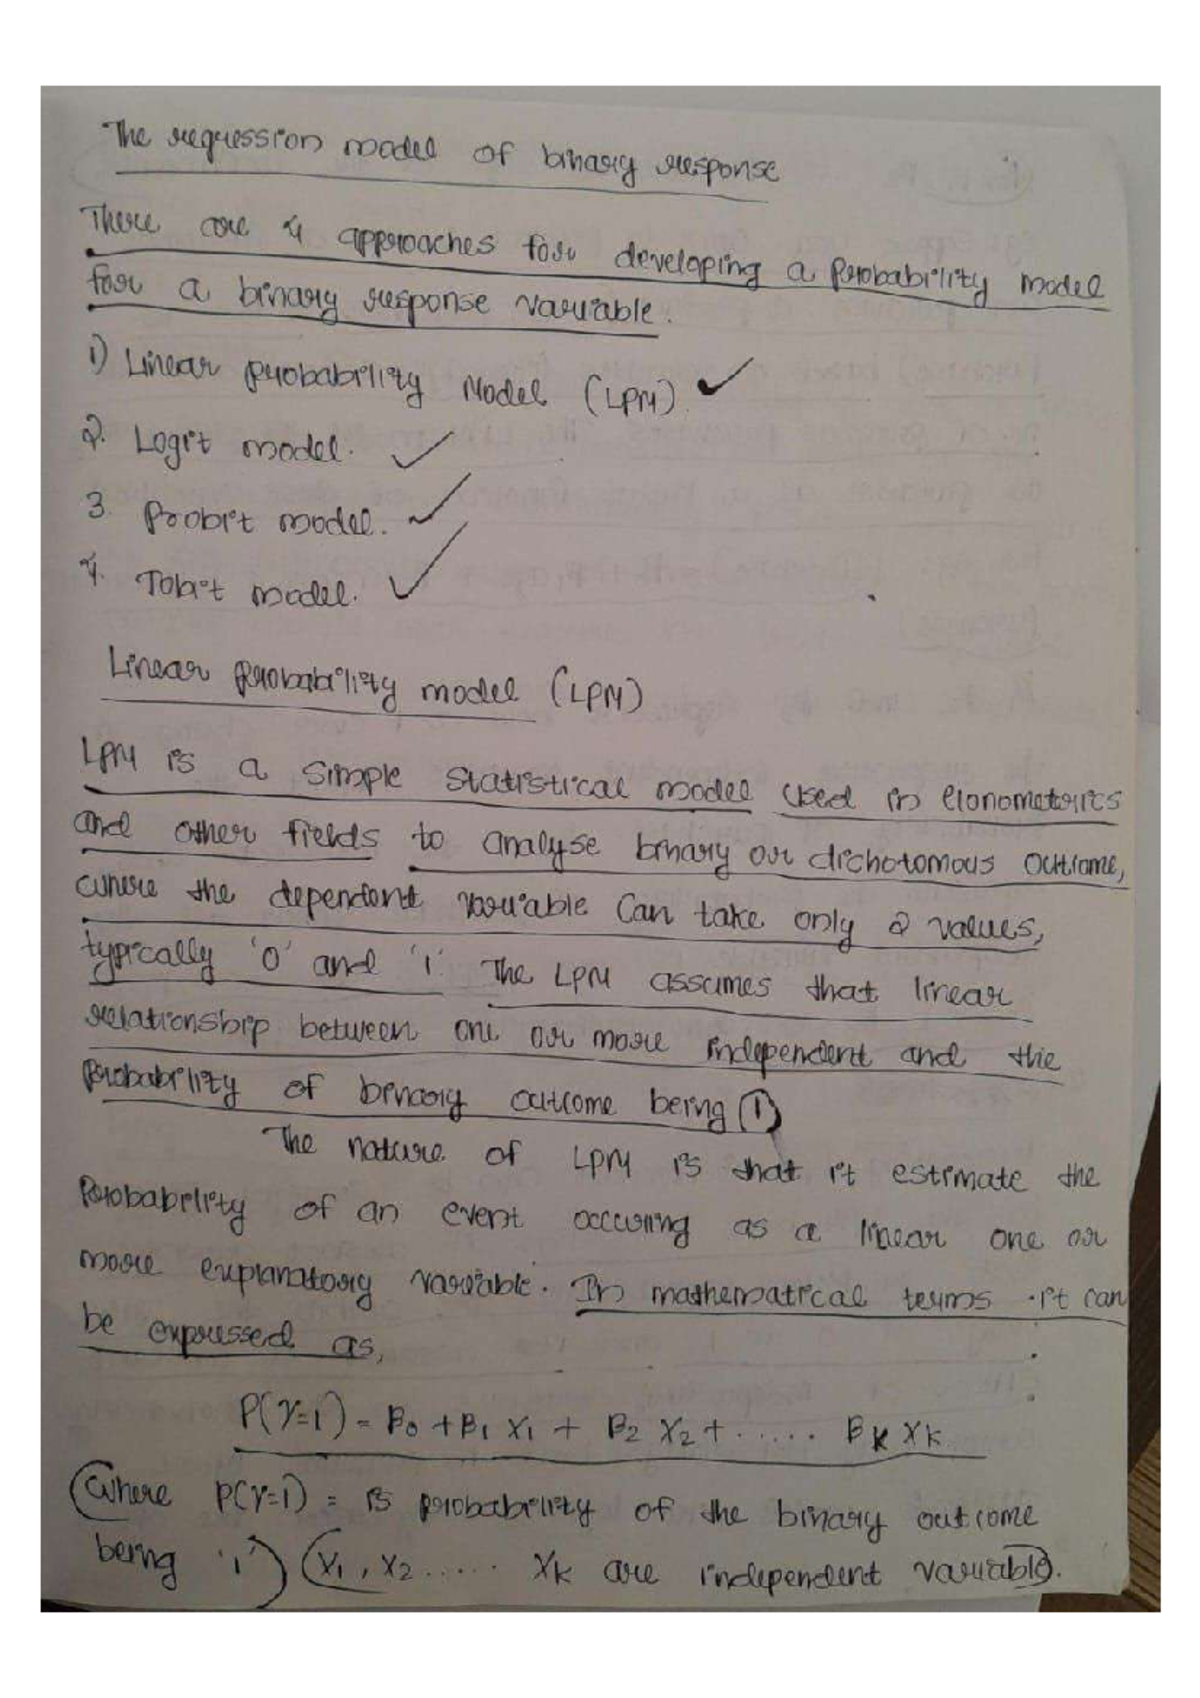 The regression model of binary response
There are 4 approaches for developing a probability model
for a binary response variable.
1) Linear probability Model (LPM)
2. Logit model.
3. Probit model.
4. Tobit model.
Linear probability model (LPM)
LPM is a simple statistical model used in econometrics
and other fields to analyse binary or dichotomous outcome,
where the dependent variable can take only 2 values,
typically '0' and '1' The LPM assumes that linear
relationship between one or more independent and the
probability of binary outcome being 1
The nature of LPM is that it estimate the
Probability of an event occuring as a linear one or
more explanatory variable. In mathematical terms it can
be expressed as,
P(Y=1) = B₀ + B₁ X₁ + B₂ X₂ + ..... Bk Xk
Where P(Y=1) = is probability of the binary outcome
being '1') (X₁, X₂ ..... Xk are independent variable).